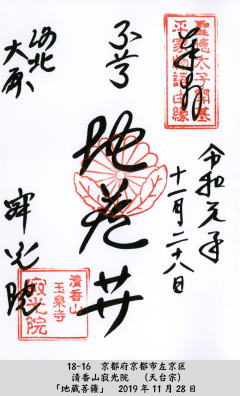 奉拝
聖徳太子開基
平家物語由緣
令和元年
十一月二十八日
地蔵サ
洛北
大原
寂光院
清香山
玉泉寺
寂光院
18-16 京都府京都市左京区
清香山寂光院 (天台宗)
「地蔵菩薩」 2019年11月28日